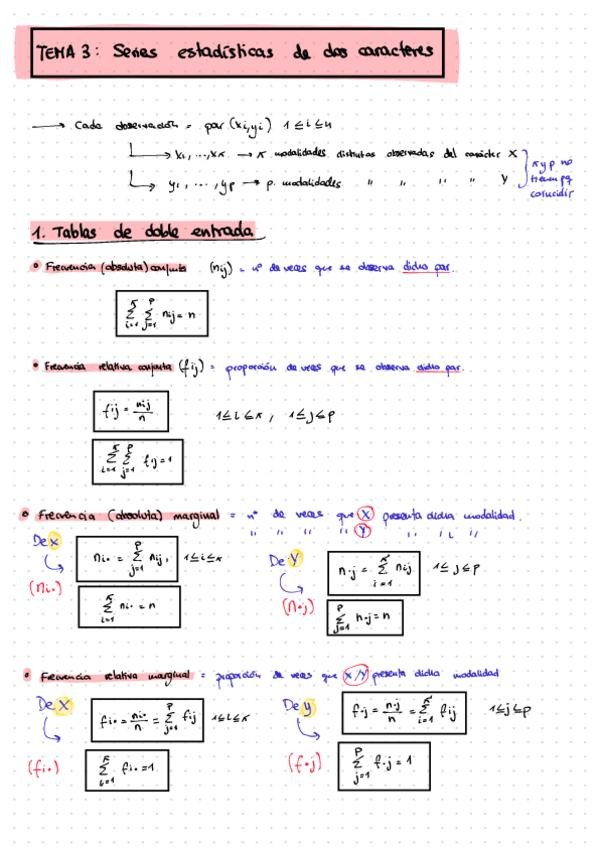 TEMA 3: Series estadísticas de dos caracteres
→ Cada observación = par (xi, yi) 1 ≤ i ≤ n
→ x1, ..., xκ → κ modalidades distintas observadas del carácter X
→ y1, ..., yp → p. modalidades " " " " Y
κ y p no tienen pq coincidir
1. Tablas de doble entrada
• Frecuencia (absoluta) conjunta (nij) = nº de veces que se observa dicho par.
κ∑i=1 p∑j=1 nij = n
• Frecuencia relativa conjunta (fij) = proporción de veces que se observa dicho par.
fij = nij/n 1 ≤ i ≤ κ, 1 ≤ j ≤ p
κ∑i=1 p∑j=1 fij = 1
• Frecuencia (absoluta) marginal = nº de veces que X presenta dicha modalidad.
" " " " Y " " "
De X
ni• = p∑j=1 nij, 1 ≤ i ≤ κ
(ni•)
κ∑i=1 ni• = n
De Y
n•j = κ∑i=1 nij 1 ≤ j ≤ p
(n•j)
p∑j=1 n•j = n
• Frecuencia relativa marginal = proporción de veces que X/Y presenta dicha modalidad
De X
fi• = ni•/n = p∑j=1 fij 1 ≤ i ≤ κ
(fi•)
κ∑i=1 fi• = 1
De y
f•j = n•j/n = κ∑i=1 fij 1 ≤ j ≤ p
(f•j)
p∑j=1 f•j = 1